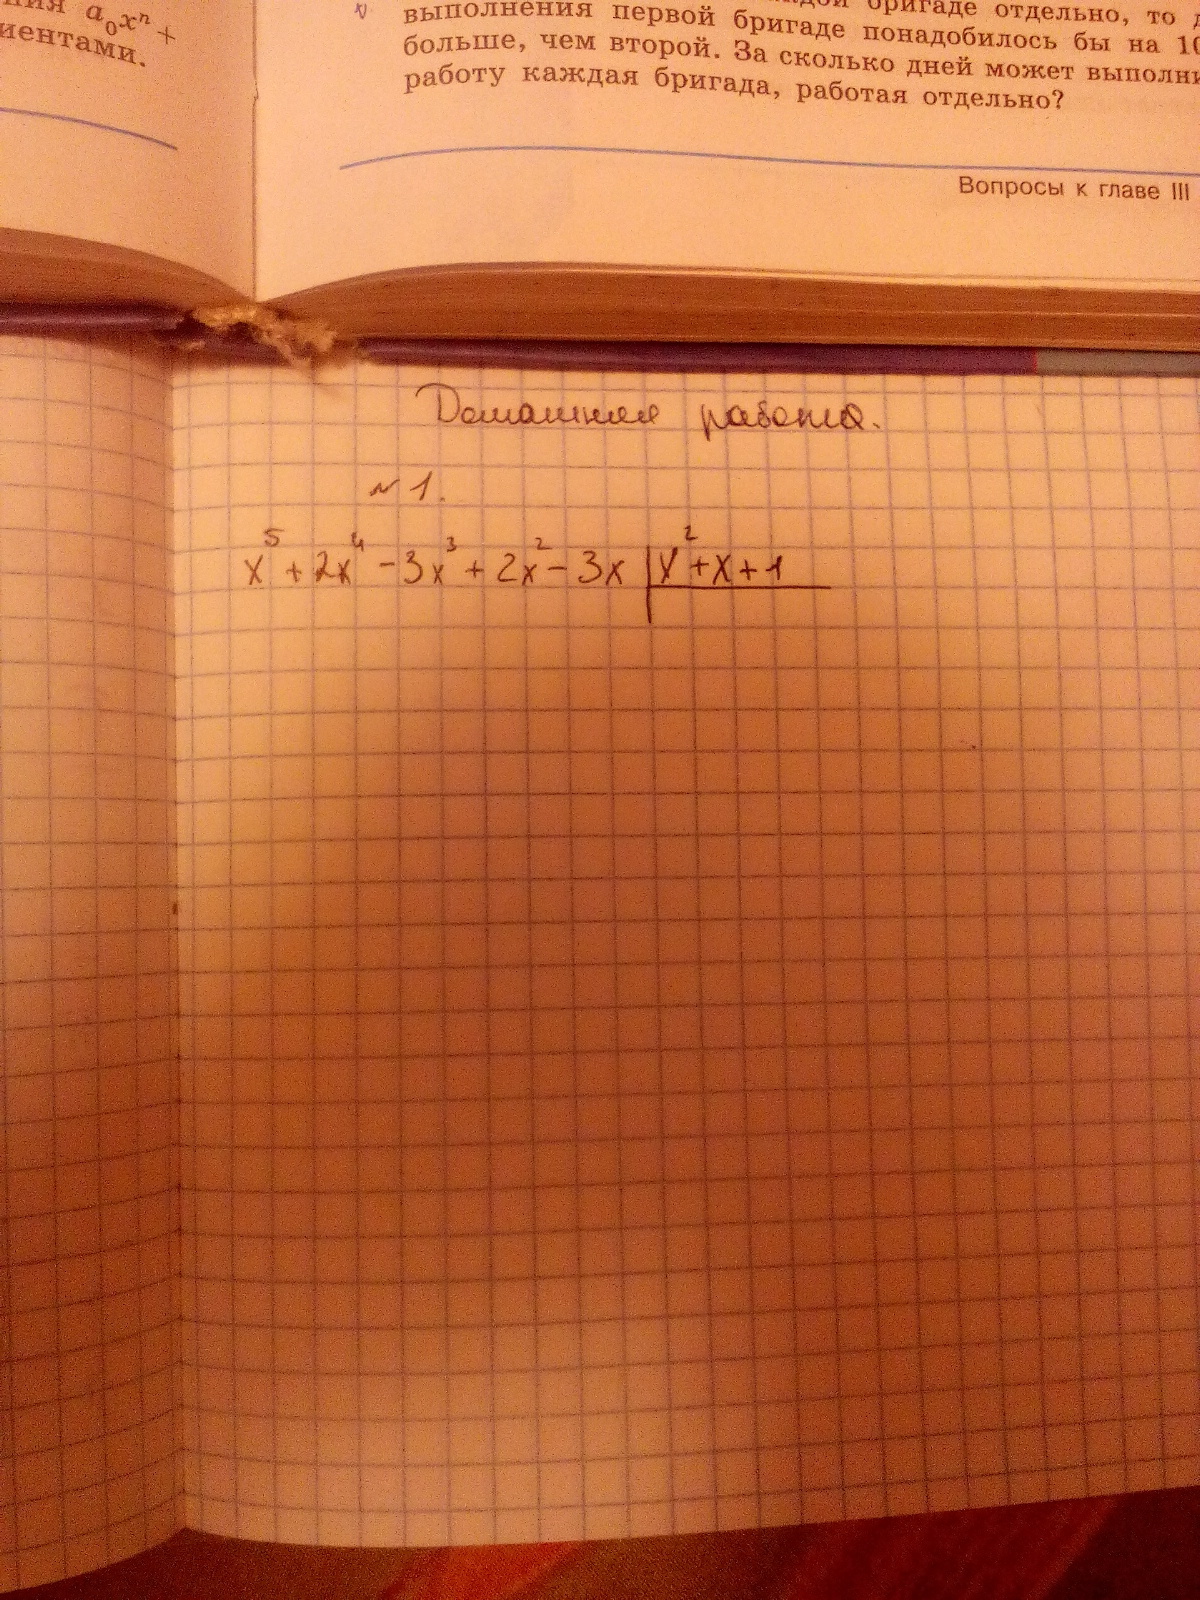 ния a₀xⁿ +
иентами.
бригаде отдельно, то
выполнения первой бригаде понадобилось бы на 10
больше, чем второй. За сколько дней может выполни
работу каждая бригада, работая отдельно?
Вопросы к главе III
Домашняя работа.
№ 1.
x⁵ + 2x⁴ - 3x³ + 2x² - 3x | x² + x + 1